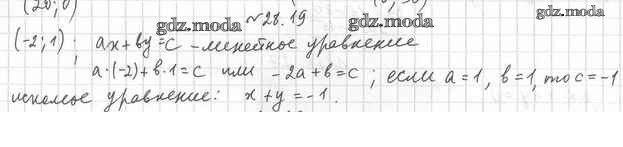 (20; 0)
gdz.moda №28.19 gdz.moda gdz.moda
(-2; 1); ax+by=c - линейное уравнение
a·(-2)+b·1=c или -2a+b=c; если a=1, b=1, то c=-1
искомое уравнение: x+y=-1.